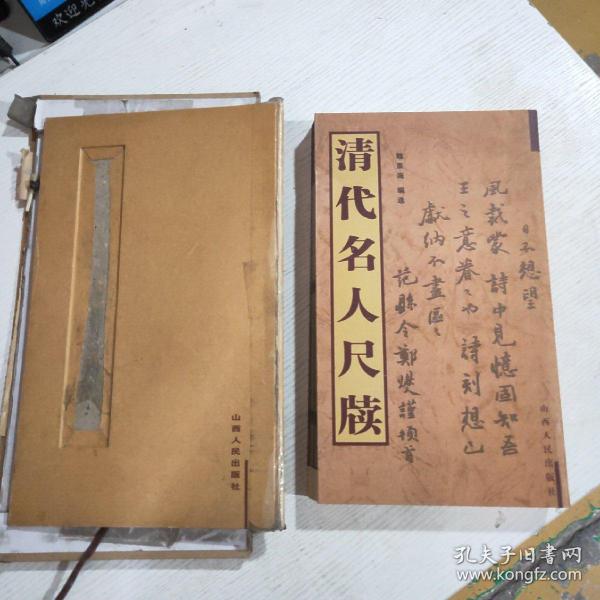 欢迎光
山西人民出版社
清代名人尺牍
编选
日不想望
风裁蒙 诗中见忆国知吾
王之意眷々也 诗刻想已
献纳不尽区々
范县令郑燮谨顿首
山西人民出版社
孔夫子旧书网
www.kongfz.com